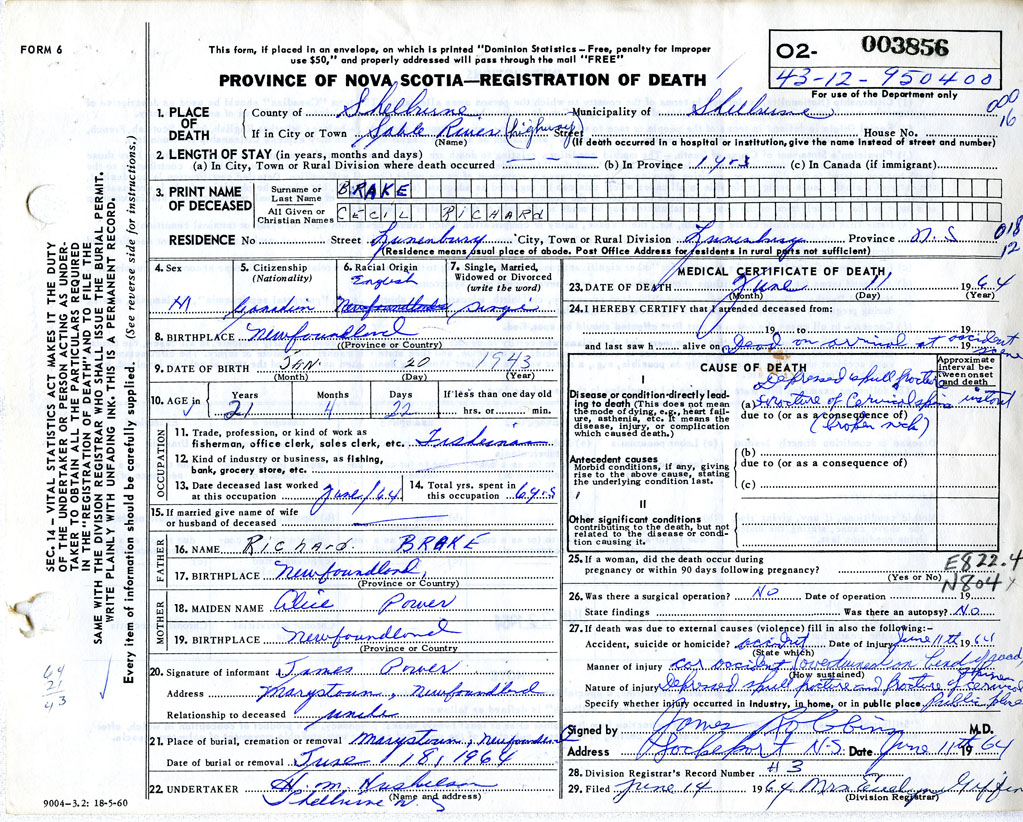 FORM 6
This form, if placed in an envelope, on which is printed "Dominion Statistics – Free, penalty for improper
use $50," and properly addressed will pass through the mail "FREE"
PROVINCE OF NOVA SCOTIA—REGISTRATION OF DEATH
02- 003856
43-12-950400
For use of the Department only
SEC. 14 – VITAL STATISTICS ACT MAKES IT THE DUTY
OF THE UNDERTAKER OR PERSON ACTING AS UNDER-
TAKER TO OBTAIN ALL THE PARTICULARS REQUIRED
IN THE "REGISTRATION OF DEATH" AND TO FILE THE
SAME WITH THE DIVISION REGISTRAR WHO SHALL ISSUE THE BURIAL PERMIT.
WRITE PLAINLY WITH UNFADING INK. THIS IS A PERMANENT RECORD.
Every item of information should be carefully supplied. (See reverse side for instructions.)
1. PLACE OF DEATH
County of Shelburne Municipality of Shelburne
000
16
If in City or Town Sable River (highway) Street House No.
(Name) (If death occurred in a hospital or institution, give the name instead of street and number)
2. LENGTH OF STAY (in years, months and days)
(a) In City, Town or Rural Division where death occurred — — — (b) In Province 1 yrs (c) In Canada (if immigrant)
3. PRINT NAME OF DECEASED
Surname or Last Name BRAKE
All Given or Christian Names CECIL RICHARD
RESIDENCE No Street Lunenburg City, Town or Rural Division Lunenburg Province N.S
018
12
(Residence means usual place of abode. Post Office Address for residents in rural parts not sufficient)
4. Sex
M
5. Citizenship (Nationality)
Canadin
6. Racial Origin
English
Newfoundlander
7. Single, Married, Widowed or Divorced (write the word)
Single
8. BIRTHPLACE Newfoundlond
(Province or Country)
9. DATE OF BIRTH JAN 20 1943
(Month) (Day) (Year)
10. AGE in Years Months Days If less than one day old
21 4 22 hrs. or min.
OCCUPATION
11. Trade, profession, or kind of work as
fisherman, office clerk, sales clerk, etc. Fisherman
12. Kind of industry or business, as fishing,
bank, grocery store, etc.
13. Date deceased last worked
at this occupation June/64
14. Total yrs. spent in
this occupation 6 yrs
15. If married give name of wife
or husband of deceased
FATHER
16. NAME Richard BRAKE
17. BIRTHPLACE Newfoundlond,
(Province or Country)
MOTHER
18. MAIDEN NAME Alice Power
19. BIRTHPLACE Newfoundlond
(Province or Country
20. Signature of informant James Power
Address Marystown, Newfoundland
Relationship to deceased uncle
21. Place of burial, cremation or removal Marystown, Newfoundland
Date of burial or removal June 18, 1964
22. UNDERTAKER H. M.
(Name and address)
Shelburne N.S
64
21
43
9004–3.2: 18-5-60
MEDICAL CERTIFICATE OF DEATH
23. DATE OF DEATH June 11 1964
(Month) (Day) (Year)
24. I HEREBY CERTIFY that I attended deceased from:
19 to 19
and last saw h alive on Dead on arrival at accident scene 19
CAUSE OF DEATH
Approximate interval between onset and death
I
Disease or condition directly lead-
ing to death (This does not mean
the mode of dying, e.g., heart fail-
ure, asthenia, etc. It means the
disease, injury, or complication
which caused death.)
Depressed skull fracture
(a) fracture of Cervical spine instant
due to (or as a consequence of)
(broken neck)
Antecedent causes
Morbid conditions, if any, giving
rise to the above cause, stating
the underlying condition last.
(b)
due to (or as a consequence of)
(c)
II
Other significant conditions
contributing to the death, but not
related to the disease or condi-
tion causing it.
25. If a woman, did the death occur during
pregnancy or within 90 days following pregnancy?
(Yes or No)
E822.4
N804
26. Was there a surgical operation? NO Date of operation 19
State findings Was there an autopsy? No
27. If death was due to external causes (violence) fill in also the following:–
Accident, suicide or homicide? accident Date of injury June 11th 1964
(State which)
Manner of injury car accident (overturned on bend of road)
(How sustained)
Nature of injury Depressed skull fracture and fracture of cervical spine
Specify whether injury occurred in industry, in home, or in public place public place
Signed by James Robbins M.D.
Address Lockeport N.S. Date June 11th 1964
28. Division Registrar's Record Number #3
29. Filed June 14 1964 Mrs Evelyn Giffin
(Division Registrar)